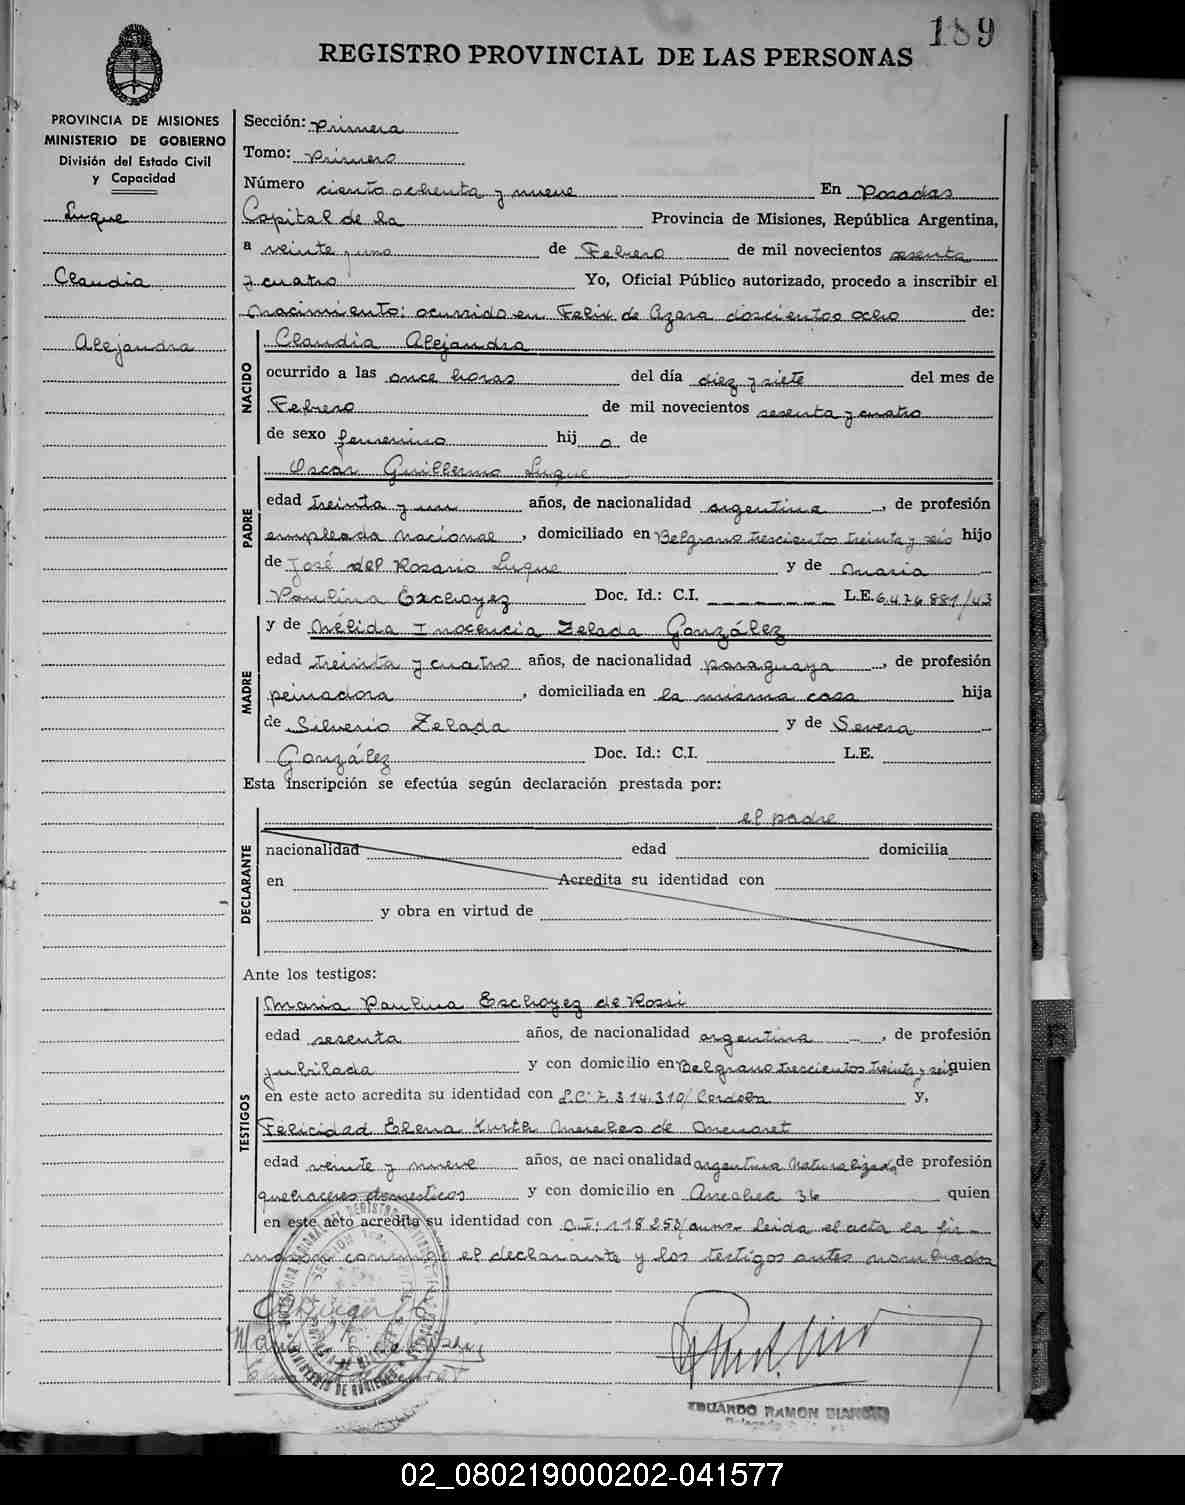 189
REGISTRO PROVINCIAL DE LAS PERSONAS
PROVINCIA DE MISIONES
MINISTERIO DE GOBIERNO
División del Estado Civil
y Capacidad
Luque
Claudia
Alejandra
Sección: Primera
Tomo: Primero
Número ciento ochenta y nueve En Posadas
Capital de la Provincia de Misiones, República Argentina,
a veinte y uno de Febrero de mil novecientos sesenta
y cuatro Yo, Oficial Público autorizado, procedo a inscribir el
Nacimiento: ocurrido en Felix de Azara doscientos ocho de:
NACIDO
Claudia Alejandra
ocurrido a las once horas del día diez y siete del mes de
Febrero de mil novecientos sesenta y cuatro
de sexo femenino hij a de
PADRE
Oscar Guillermo Luque
edad treinta y un años, de nacionalidad argentina, de profesión
empleado Nacional, domiciliado en Belgrano trescientos treinta y seis hijo
de José del Rosario Luque y de Maria
Paulina Exchoyez Doc. Id.: C.I. L.E. 6.426.881/43
MADRE
y de Nélida Inocencia Zelada González
edad treinta y cuatro años, de nacionalidad paraguaya, de profesión
peinadora, domiciliada en la misma casa hija
de Silverio Zelada y de Severa
González Doc. Id.: C.I. L.E.
Esta inscripción se efectúa según declaración prestada por:
DECLARANTE
el padre
nacionalidad edad domicilia
en Acredita su identidad con
y obra en virtud de
Ante los testigos:
TESTIGOS
Maria Paulina Exchoyez de Rossi
edad sesenta años, de nacionalidad argentina, de profesión
jubilada y con domicilio en Belgrano trescientos treinta y seis quien
en este acto acredita su identidad con L.C: 7.314.310/Cordoba y,
Felicidad Elena Kurth Mereles de
edad veinte y nueve años, de nacionalidad argentina Naturalizada de profesión
quehaceres domesticos y con domicilio en Arrechea 36 quien
en este acto acredita su identidad con C.I: 118.258/ Leida el acta la fir-
maron conmigo el declarante y los testigos antes nombrados
EDUARDO RAMON
02_080219000202-041577